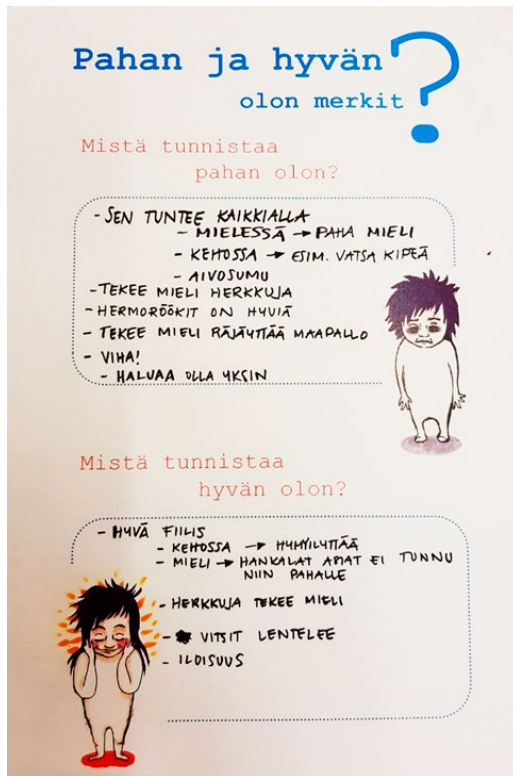 Pahan ja hyvän
olon merkit ?
Mistä tunnistaa
pahan olon?
- SEN TUNTEE KAIKKIALLA
- MIELESSÄ → PAHA MIELI
- KEHOSSA → ESIM. VATSA KIPEÄ
- AIVOSUMU
- TEKEE MIELI HERKKUJA
- HERMORÖÖKIT ON HYVIÄ
- TEKEE MIELI RÄJÄYTTÄÄ MAAPALLO
- VIHA!
- HALUAA OLLA YKSIN
Mistä tunnistaa
hyvän olon?
- HYVÄ FIILIS
- KEHOSSA → HYMYILYTTÄÄ
- MIELI → HANKALAT ASIAT EI TUNNU
NIIN PAHALLE
- HERKKUJA TEKEE MIELI
- VITSIT LENTELEE
- ILOISUUS